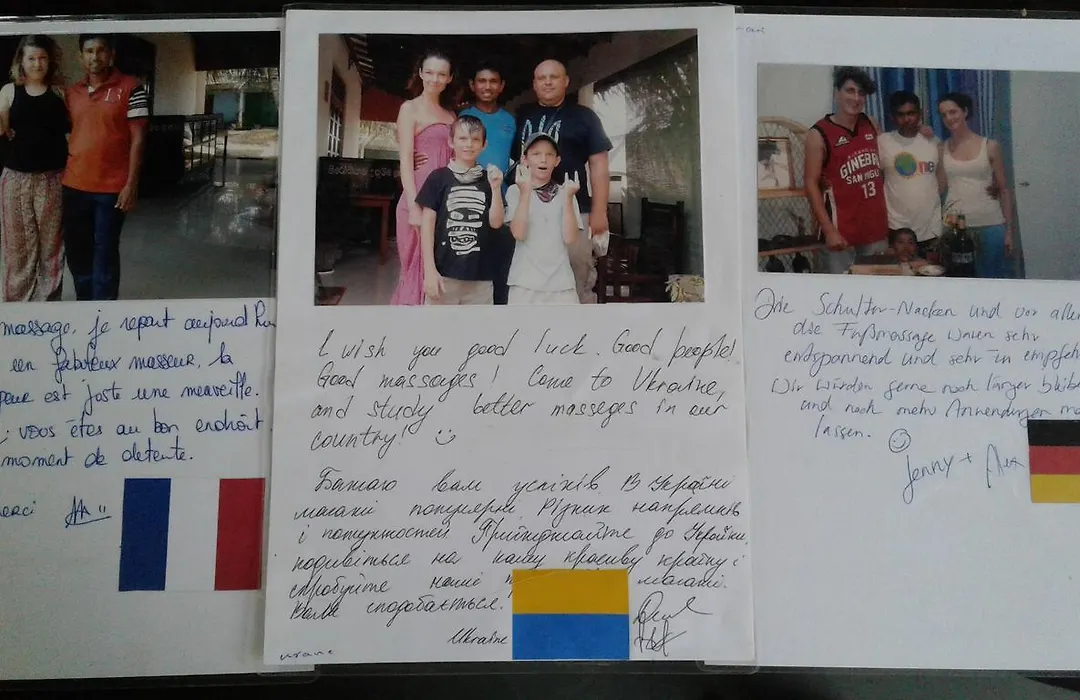 massage, je repart aujourd'hui
un fabuleux masseur, la
est juste une merveille.
vous êtes au bon endroit
moment de detente.
erci
I wish you good luck. Good people!
Good massages! Come to Ukraine,
and study better masseges in our
country!
Бажаю вам успіхів. В Україні
масажі популярні. Різних напрямків
і потужностей. Приїжджайте до України,
подивіться на нашу красиву країну і
спробуйте наші масажі.
Вам сподобається.
Ukraine
Die Schulter-Nacken und vor allem
die Fußmassage waren sehr
entspannend und sehr zu empfeh
Wir würden gerne noch länger bleiben
und noch mehr Anwendungen ma
lassen.
Jenny + Alex
13
GINEBRA
SAN MIGU
13
one